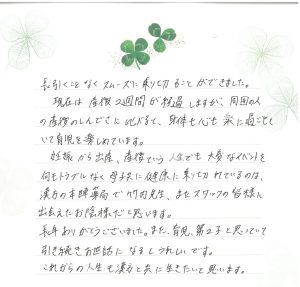 長引くことなくスムーズに乗り切ることができました。
現在は産後2週間が経過しますが、周囲の人
の産後のしんどさに比べると、身体も心も楽に過ごせて
いて育児を楽しめています。
妊娠から出産、産後という人生でも大変なイベントを
何もトラブルなく母子共に健康に乗り切れているのは、
漢方の本陣薬局で竹内先生、またスタッフの皆様に
出会えたお陰様だと思います。
長年ありがとうございました。また、育児、第2子と思っていて
引き続きお世話になるとうれしいです。
これからの人生も漢方と共に生きたいと思います。